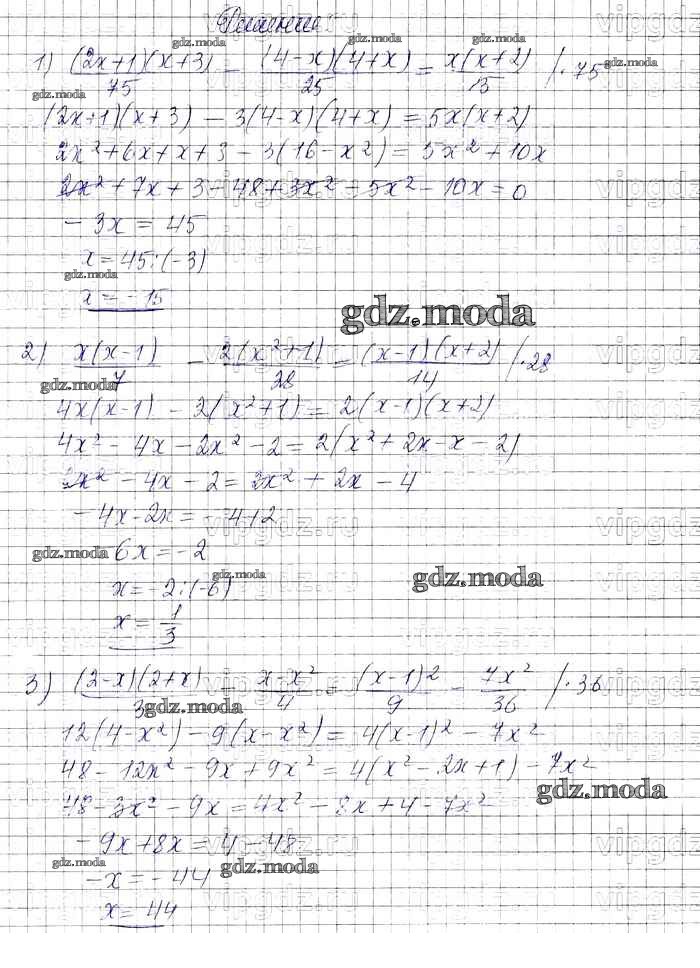 Решение
1) (2x+1)(x+3)/75 - (4-x)(4+x)/25 = x(x+2)/15 /·75
(2x+1)(x+3) - 3(4-x)(4+x) = 5x(x+2)
2x²+6x+x+3-3(16-x²) = 5x²+10x
2x²+7x+3-48+3x²-5x²-10x=0
-3x = 45
x=45:(-3)
x=-15
2) x(x-1)/7 - 2(x²+1)/28 = (x-1)(x+2)/14 /·28
4x(x-1) - 2(x²+1) = 2(x-1)(x+2)
4x²-4x-2x²-2=2(x²+2x-x-2)
2x²-4x-2=2x²+2x-4
-4x-2x=-4+2
-6x=-2
x=-2:(-6)
x=1/3
3) (2-x)(2+x)/3 - x-x²/4 = (x-1)²/9 - 7x²/36 /·36
12(4-x²)-9(x-x²)=4(x-1)²-7x²
48-12x²-9x+9x²=4(x²-2x+1)-7x²
48-3x²-9x=4x²-8x+4-7x²
-9x+8x=4-48
-x=-44
x=44
gdz.moda
vipgdz.ru